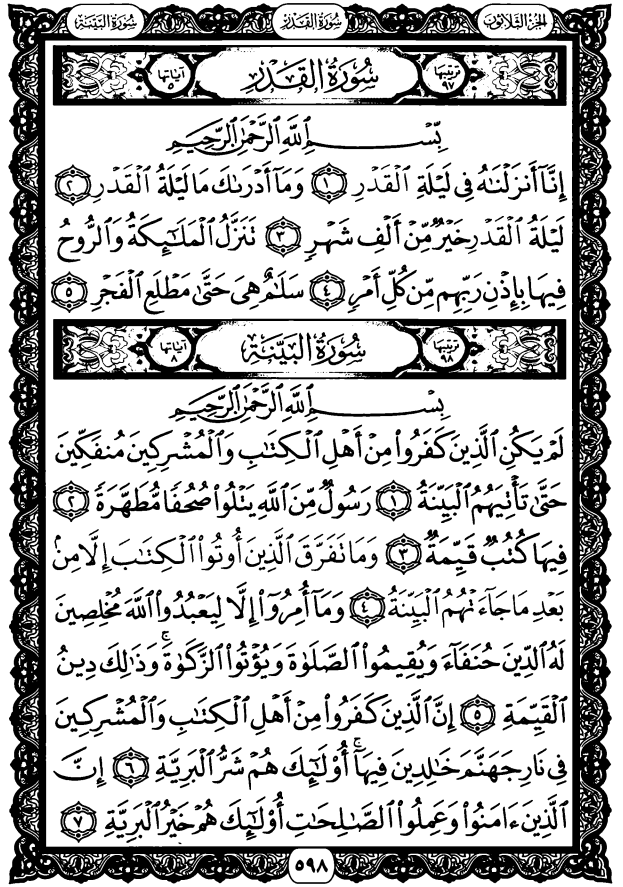 الجزء الثلاثون
سورة القدر
سورة البينة
ترتيبها ٩٧
سُورَةُ القَدْرِ
آياتها ٥
بِّسْمِ ٱللَّهِ ٱلرَّحْمَٰنِ ٱلرَّحِيمِ
إِنَّآ أَنزَلْنَٰهُ فِى لَيْلَةِ ٱلْقَدْرِ ١ وَمَآ أَدْرَىٰكَ مَا لَيْلَةُ ٱلْقَدْرِ ٢
لَيْلَةُ ٱلْقَدْرِ خَيْرٌ مِّنْ أَلْفِ شَهْرٍ ٣ تَنَزَّلُ ٱلْمَلَٰٓئِكَةُ وَٱلرُّوحُ
فِيهَا بِإِذْنِ رَبِّهِم مِّن كُلِّ أَمْرٍ ٤ سَلَٰمٌ هِىَ حَتَّىٰ مَطْلَعِ ٱلْفَجْرِ ٥
ترتيبها ٩٨
سُورَةُ البَيِّنَةِ
آياتها ٨
بِّسْمِ ٱللَّهِ ٱلرَّحْمَٰنِ ٱلرَّحِيمِ
لَمْ يَكُنِ ٱلَّذِينَ كَفَرُوا۟ مِنْ أَهْلِ ٱلْكِتَٰبِ وَٱلْمُشْرِكِينَ مُنفَكِّينَ
حَتَّىٰ تَأْتِيَهُمُ ٱلْبَيِّنَةُ ١ رَسُولٌ مِّنَ ٱللَّهِ يَتْلُوا۟ صُحُفًا مُّطَهَّرَةً ٢
فِيهَا كُتُبٌ قَيِّمَةٌ ٣ وَمَا تَفَرَّقَ ٱلَّذِينَ أُوتُوا۟ ٱلْكِتَٰبَ إِلَّا مِنۢ
بَعْدِ مَا جَآءَتْهُمُ ٱلْبَيِّنَةُ ٤ وَمَآ أُمِرُوٓا۟ إِلَّا لِيَعْبُدُوا۟ ٱللَّهَ مُخْلِصِينَ
لَهُ ٱلدِّينَ حُنَفَآءَ وَيُقِيمُوا۟ ٱلصَّلَوٰةَ وَيُؤْتُوا۟ ٱلزَّكَوٰةَ ۚ وَذَٰلِكَ دِينُ
ٱلْقَيِّمَةِ ٥ إِنَّ ٱلَّذِينَ كَفَرُوا۟ مِنْ أَهْلِ ٱلْكِتَٰبِ وَٱلْمُشْرِكِينَ
فِى نَارِ جَهَنَّمَ خَٰلِدِينَ فِيهَآ ۚ أُو۟لَٰٓئِكَ هُمْ شَرُّ ٱلْبَرِيَّةِ ٦ إِنَّ
ٱلَّذِينَ ءَامَنُوا۟ وَعَمِلُوا۟ ٱلصَّٰلِحَٰتِ أُو۟لَٰٓئِكَ هُمْ خَيْرُ ٱلْبَرِيَّةِ ٧
٥٩٨